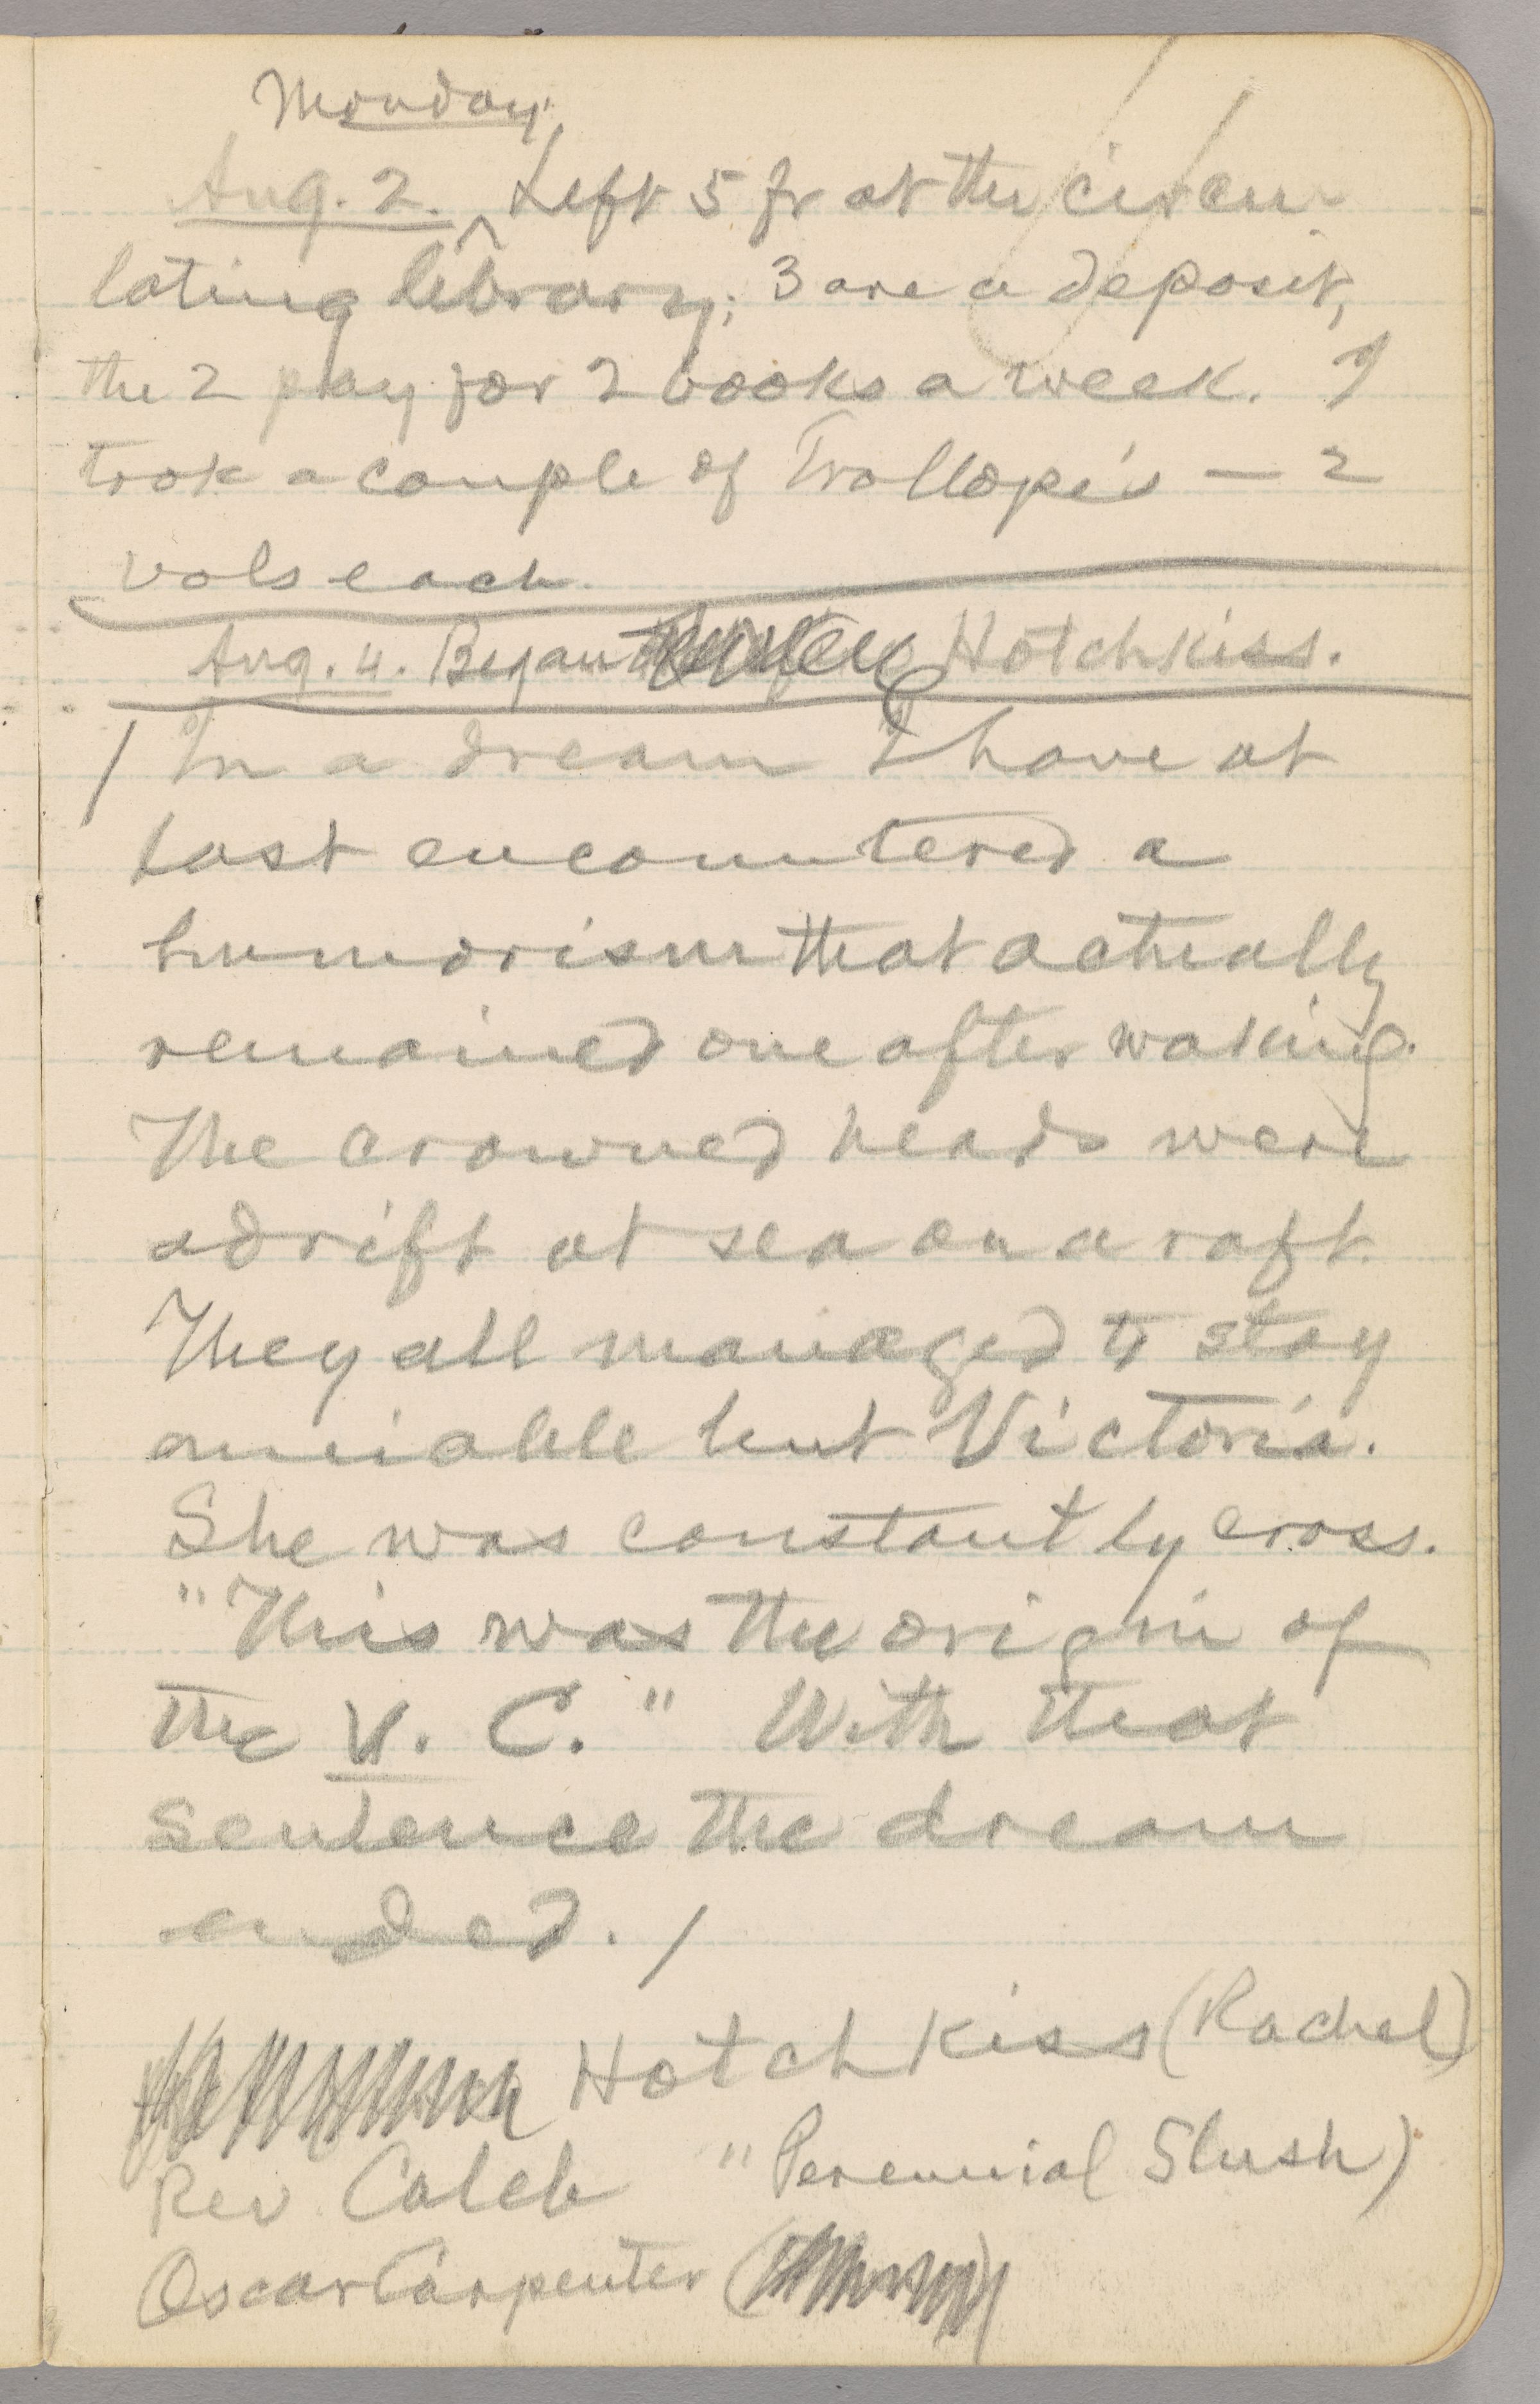 Monday,
Aug. 2. ^ Left 5 fr at the circu-
lating library; 3 are a deposit,
the 2 pay for 2 books a week. I
took a couple of Trollope's — 2
vols each.
Aug. 4. Began Hotchkiss.
/ In a dream I have at
last encountered a
humorism that actually
remained one after waking.
The crowned heads were
adrift at sea on a raft.
They all managed to stay
amiable but Victoria.
She was constantly cross.
"This was the origin of
the V. C." With that
sentence the dream
ended. /
Hotchkiss (Rachel)
Rev Caleb " Perennial Slush)
Oscar Carpenter (